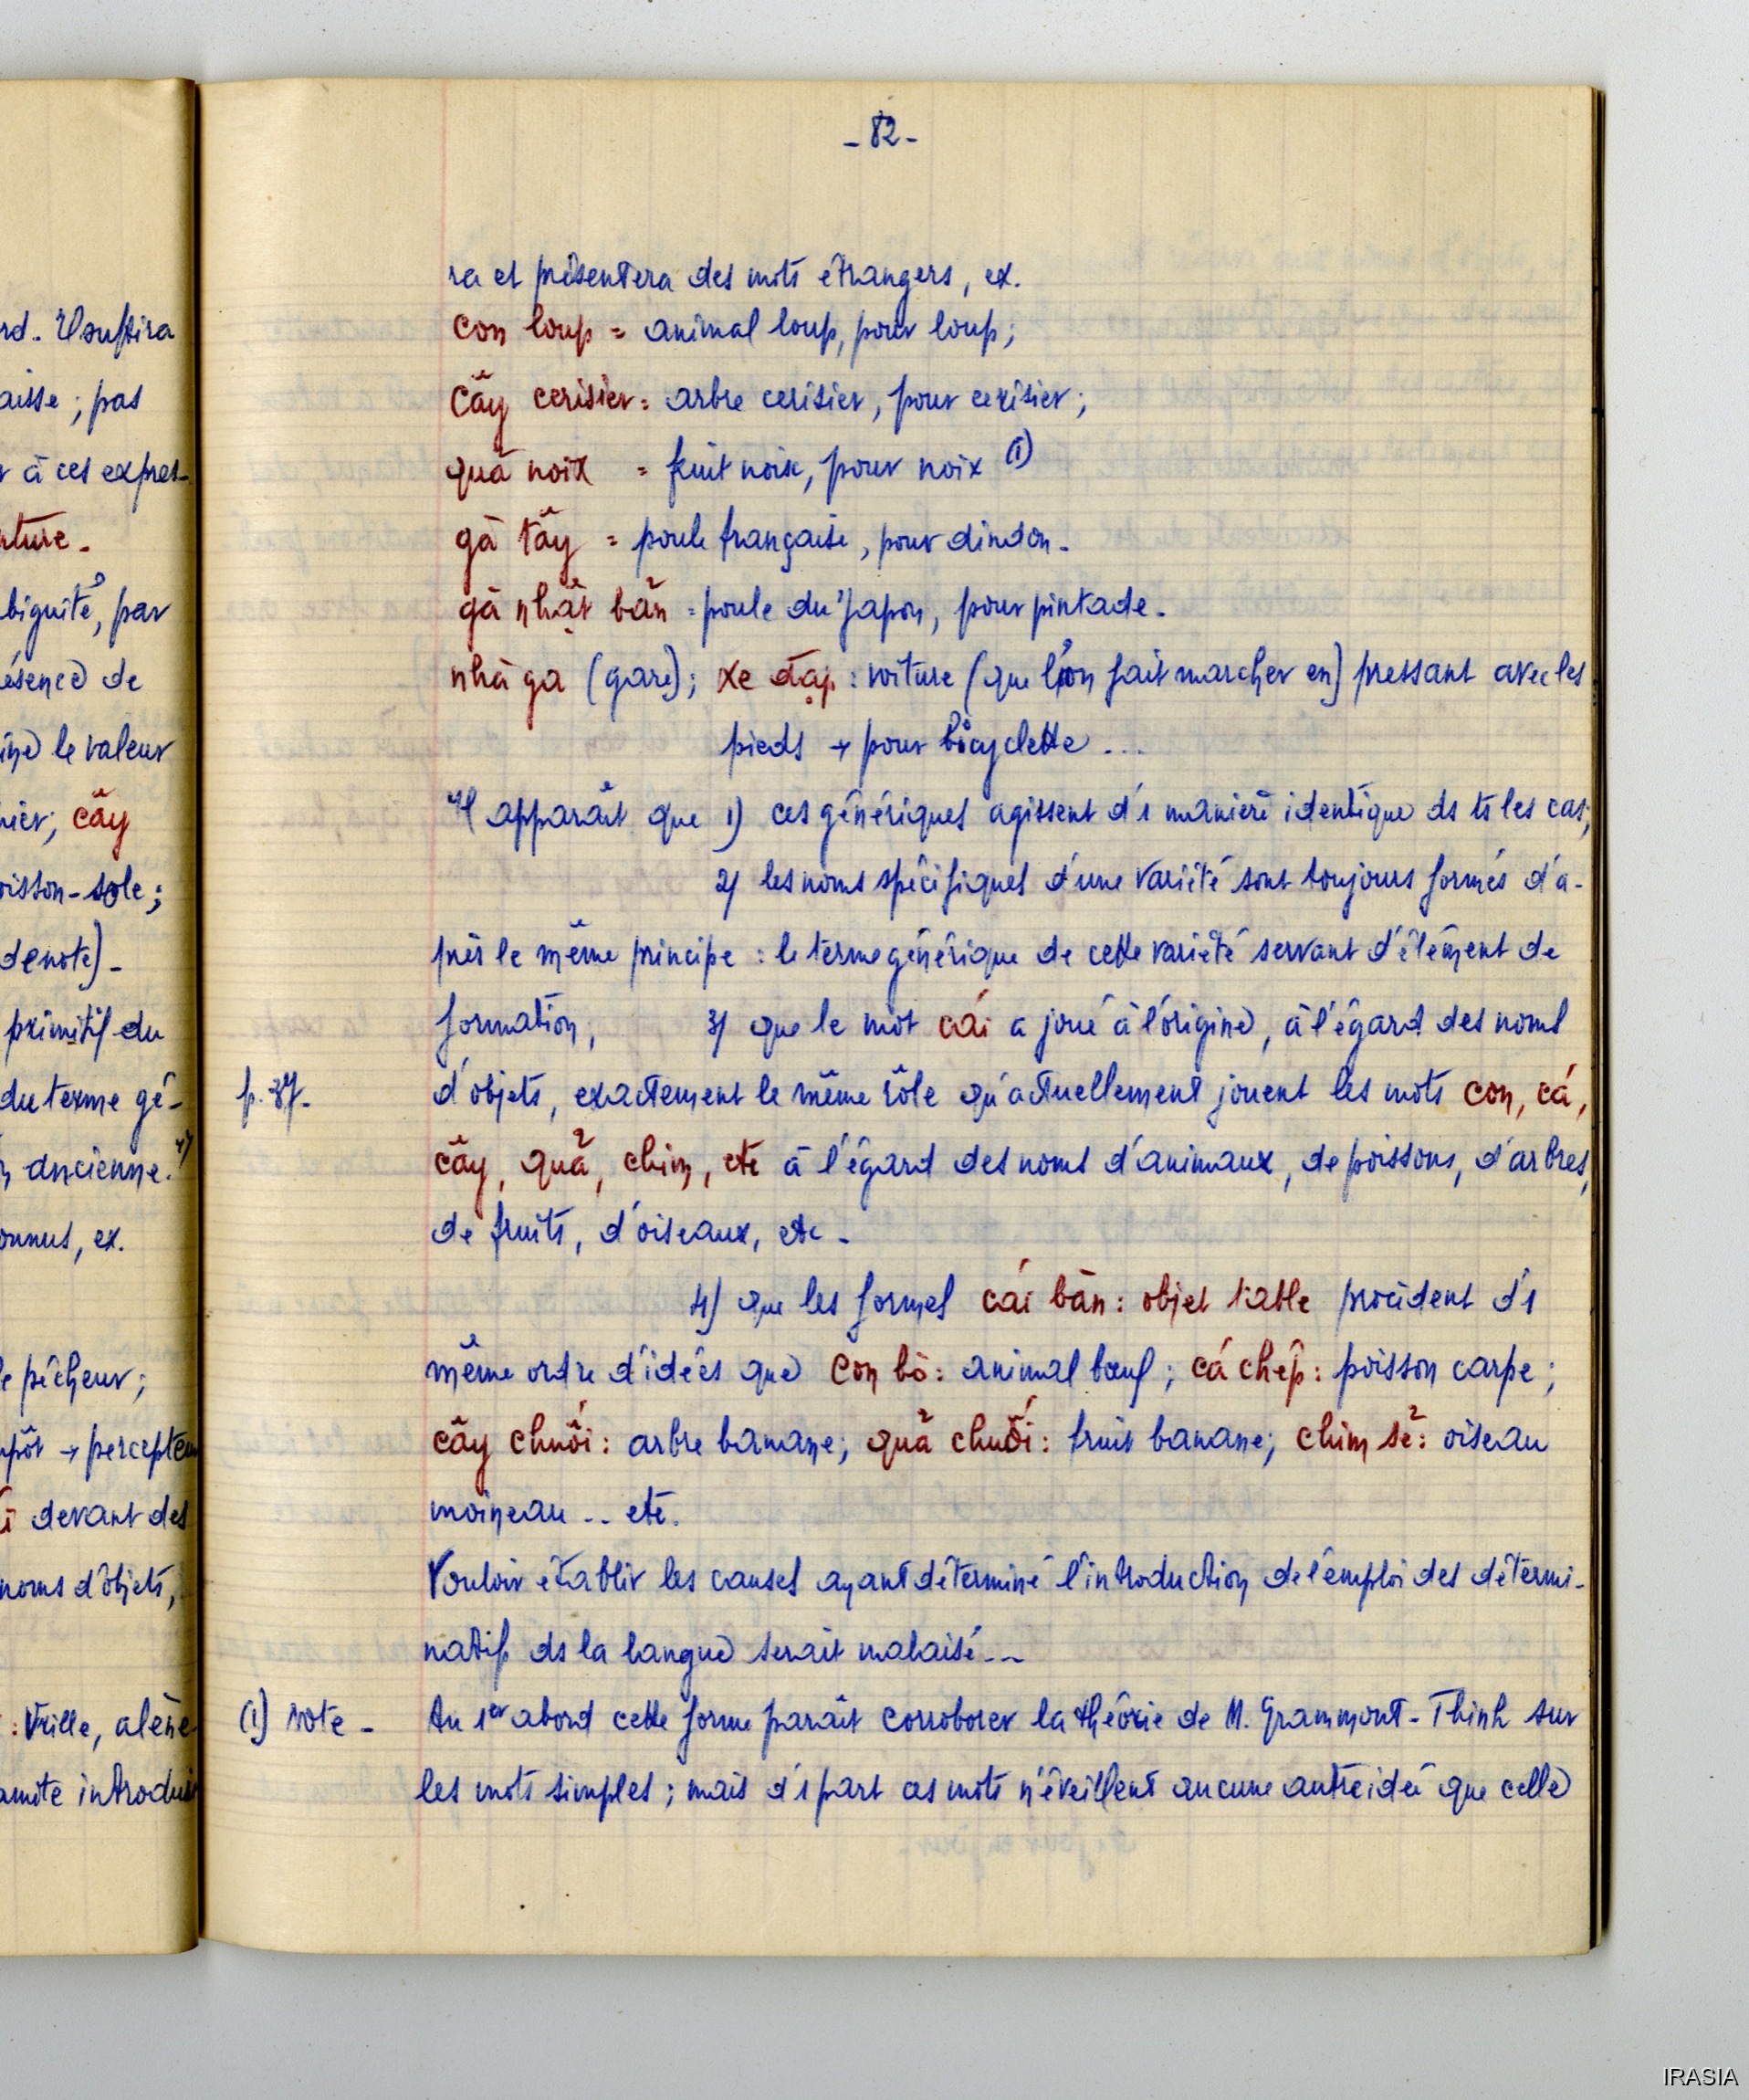 - 82 -
ra et présentera des mots étrangers, ex.
con loup = animal loup, pour loup;
cây cerisier = arbre cerisier, pour cerisier;
quả noix = fruit noix, pour noix (1)
gà tây = poule française, pour dindon.
gà nhật bản = poule du Japon, pour pintade.
nhà ga (gare); xe đạp : voiture (que l'on fait marcher en) pressant avec les
pieds → pour bicyclette ...
Il apparaît que 1) ces génériques agissent d'1 manière identique ds ts les cas;
2) les noms spécifiques d'une variété sont toujours formés d'a-
près le même principe : le terme générique de cette variété servant d'élément de
formation, 3) que le mot cái a joué à l'origine, à l'égard des noms
p. 37. d'objets, exactement le même rôle qu'actuellement jouent les mots con, cá,
cây, quả, chim, etc à l'égard des noms d'animaux, de poissons, d'arbres,
de fruits, d'oiseaux, etc -
4) que les formes cái bàn : objet table procèdent d'1
même ordre d'idées que con bò : animal bœuf ; cá chép : poisson carpe ;
cây chuối : arbre banane; quả chuối : fruit banane; chim sẻ : oiseau
moineau .. etc.
Vouloir établir les causes ayant déterminé l'introduction de l'emploi des détermi-
natifs ds la langue serait malaisé...
(1) Note - Au 1er abord cette forme paraît corroborer la théorie de M. Grammont - Thinh sur
les mots simples ; mais d'1 part ces mots n'éveillent aucune autre idée que celle
rd. Il suffira
aisse ; pas
r à ces expres-
ature.
biguité, par
ésence de
ine le valeur
nier; cây
oisson-sole;
denote)-
primitif du
du terme gé-
n ancienne.
onnus, ex.
le pêcheur;
mpôt → percepteu
i devant des
noms d'objets,
: Vrille, alène
amite introdui
IRASIA